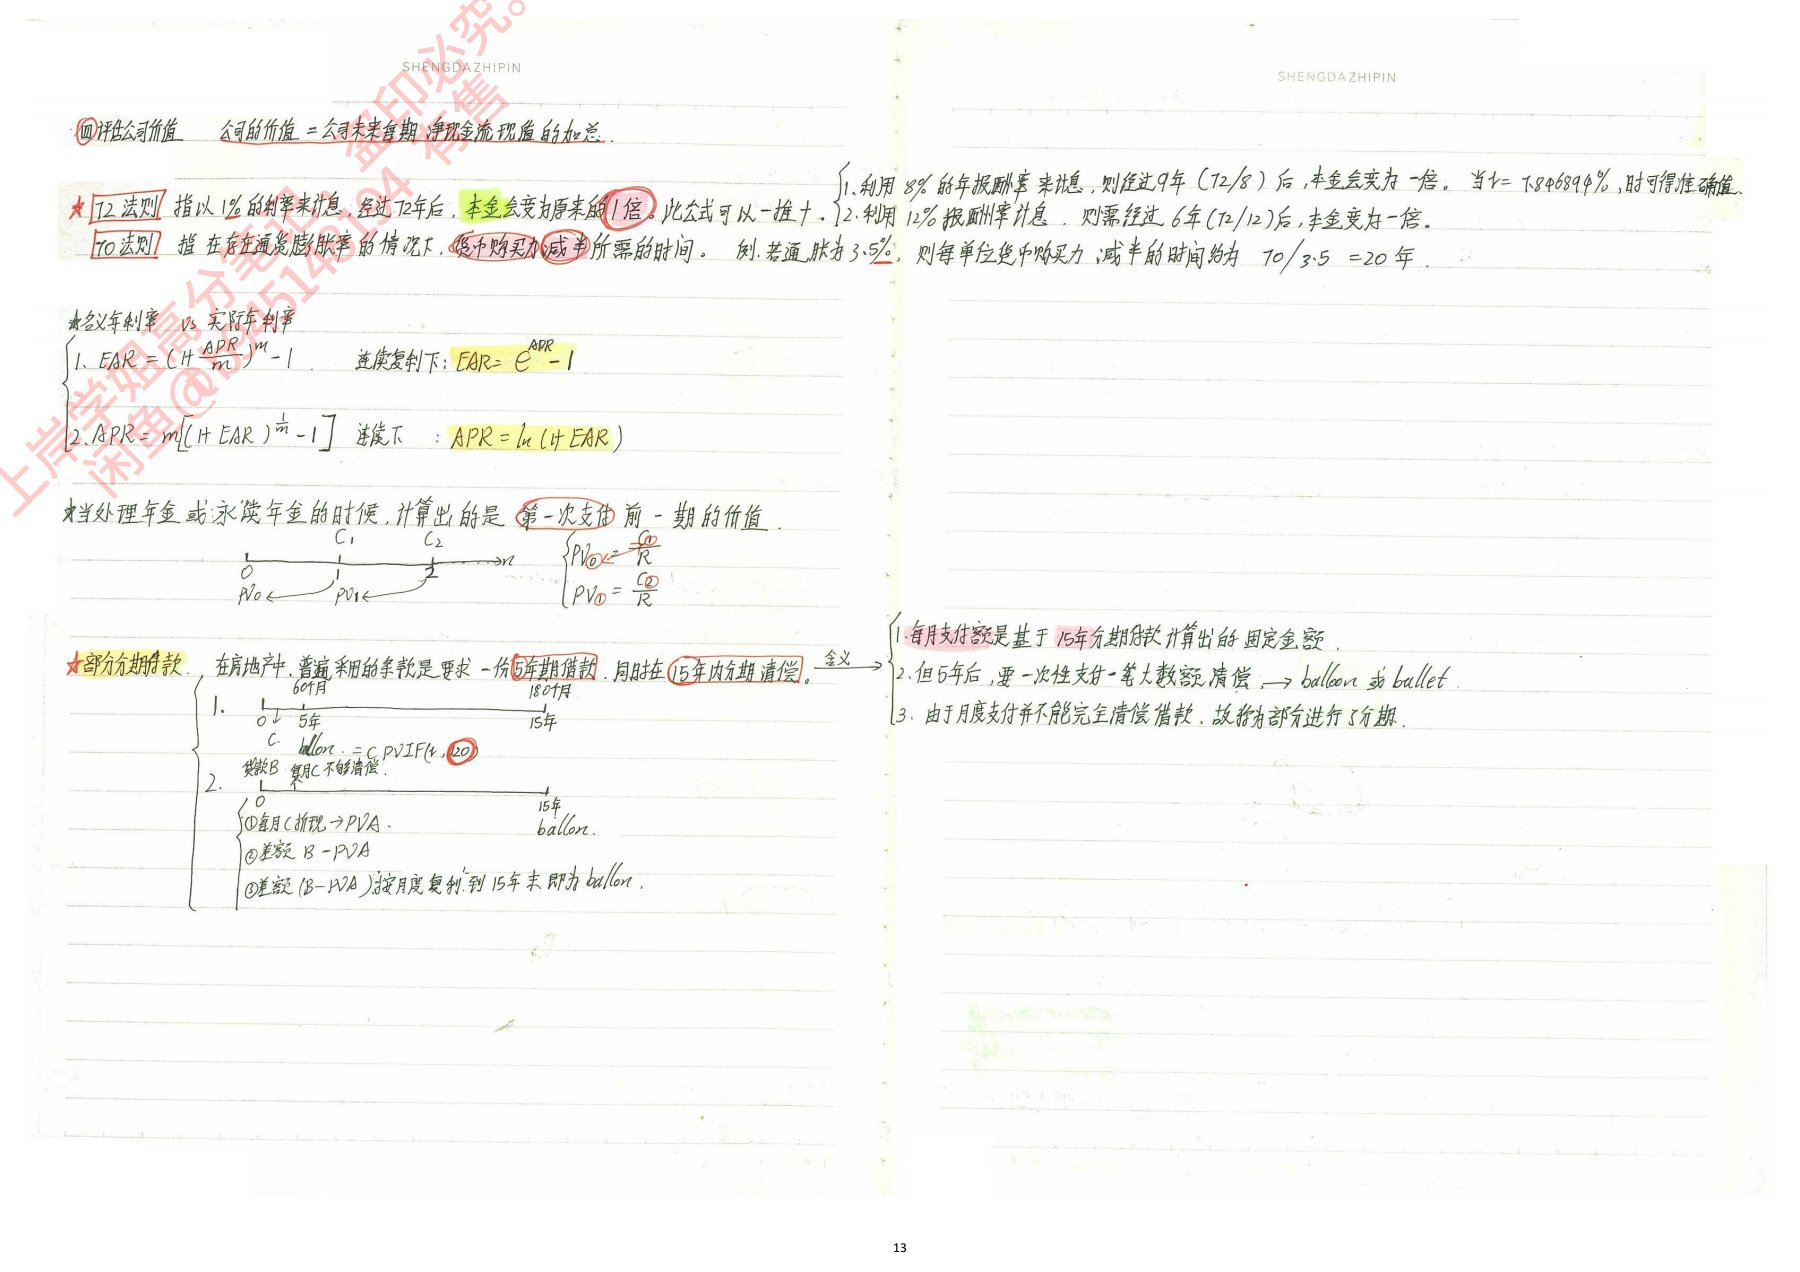 SHENGDAZHIPIN
SHENGDAZHIPIN
上岸学姐高分笔记，盗印必究。
闲鱼@b9451435104 有售
㈣评估公司价值 公司的价值 = 公司未来每期净现金流现值的加总.
★ 72法则 指以1%的利率来计息，经过72年后，本金会变为原来的1倍。此公式可以一推十.
1. 利用 8% 的年报酬率 来计息，则经过9年 (72/8) 后，本金会变为一倍。 当r = 7.846894%，时可得准确值.
2. 利用12%报酬率计息. 则需经过 6年(72/12)后，本金变为一倍。
70法则 指在存在通货膨胀率的情况下，货币购买力减半所需的时间。 例.若通胀为3.5%，则每单位货币购买力减半的时间约为 70/3.5 =20年.
★名义年利率 vs 实际年利率
1. EAR = (1+APR/m)^m - 1 连续复利下: EAR= e^APR - 1
2. APR = m[(1+EAR)^(1/m) - 1] 连续下 : APR = ln(1+EAR)
★当处理年金或永续年金的时候，计算出的是 第一次支付 前一期的价值.
C1 C2
0 1 2 n
PV0 PV1
PV⓪ = C①/R
PV① = C②/R
★部分分期付款. 在房地产中，普遍采用的条款是要求一份5年期借款，同时在15年内分期清偿。 含义
1. 每月支付额是基于 15年分期付款计算出的固定金额.
2. 但5年后，要一次性支付一笔大数额清偿. → balloon 或 bullet.
3. 由于月度支付并不能完全清偿借款，故称为部分进行了分期.
1. 60个月 180个月
0 5年 15年
C. ballon. = C PVIF(r, 120)
2. 贷款B 每月C不够清偿.
0 15年
ballon.
①每月C折现→PVA.
②差额 B-PVA
③差额(B-PVA)按"月度复利"到15年末即为ballon.
13